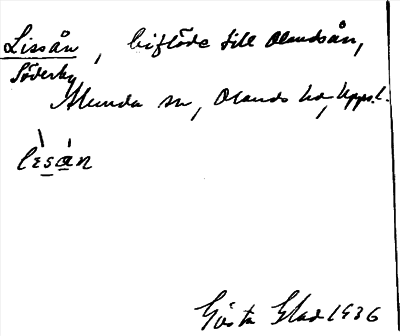 Lissån, biflöde till Olandsån,
Söderby
Alunda sn, Olands hd, Uppsl.
lèsán
Gösta Glad 1936